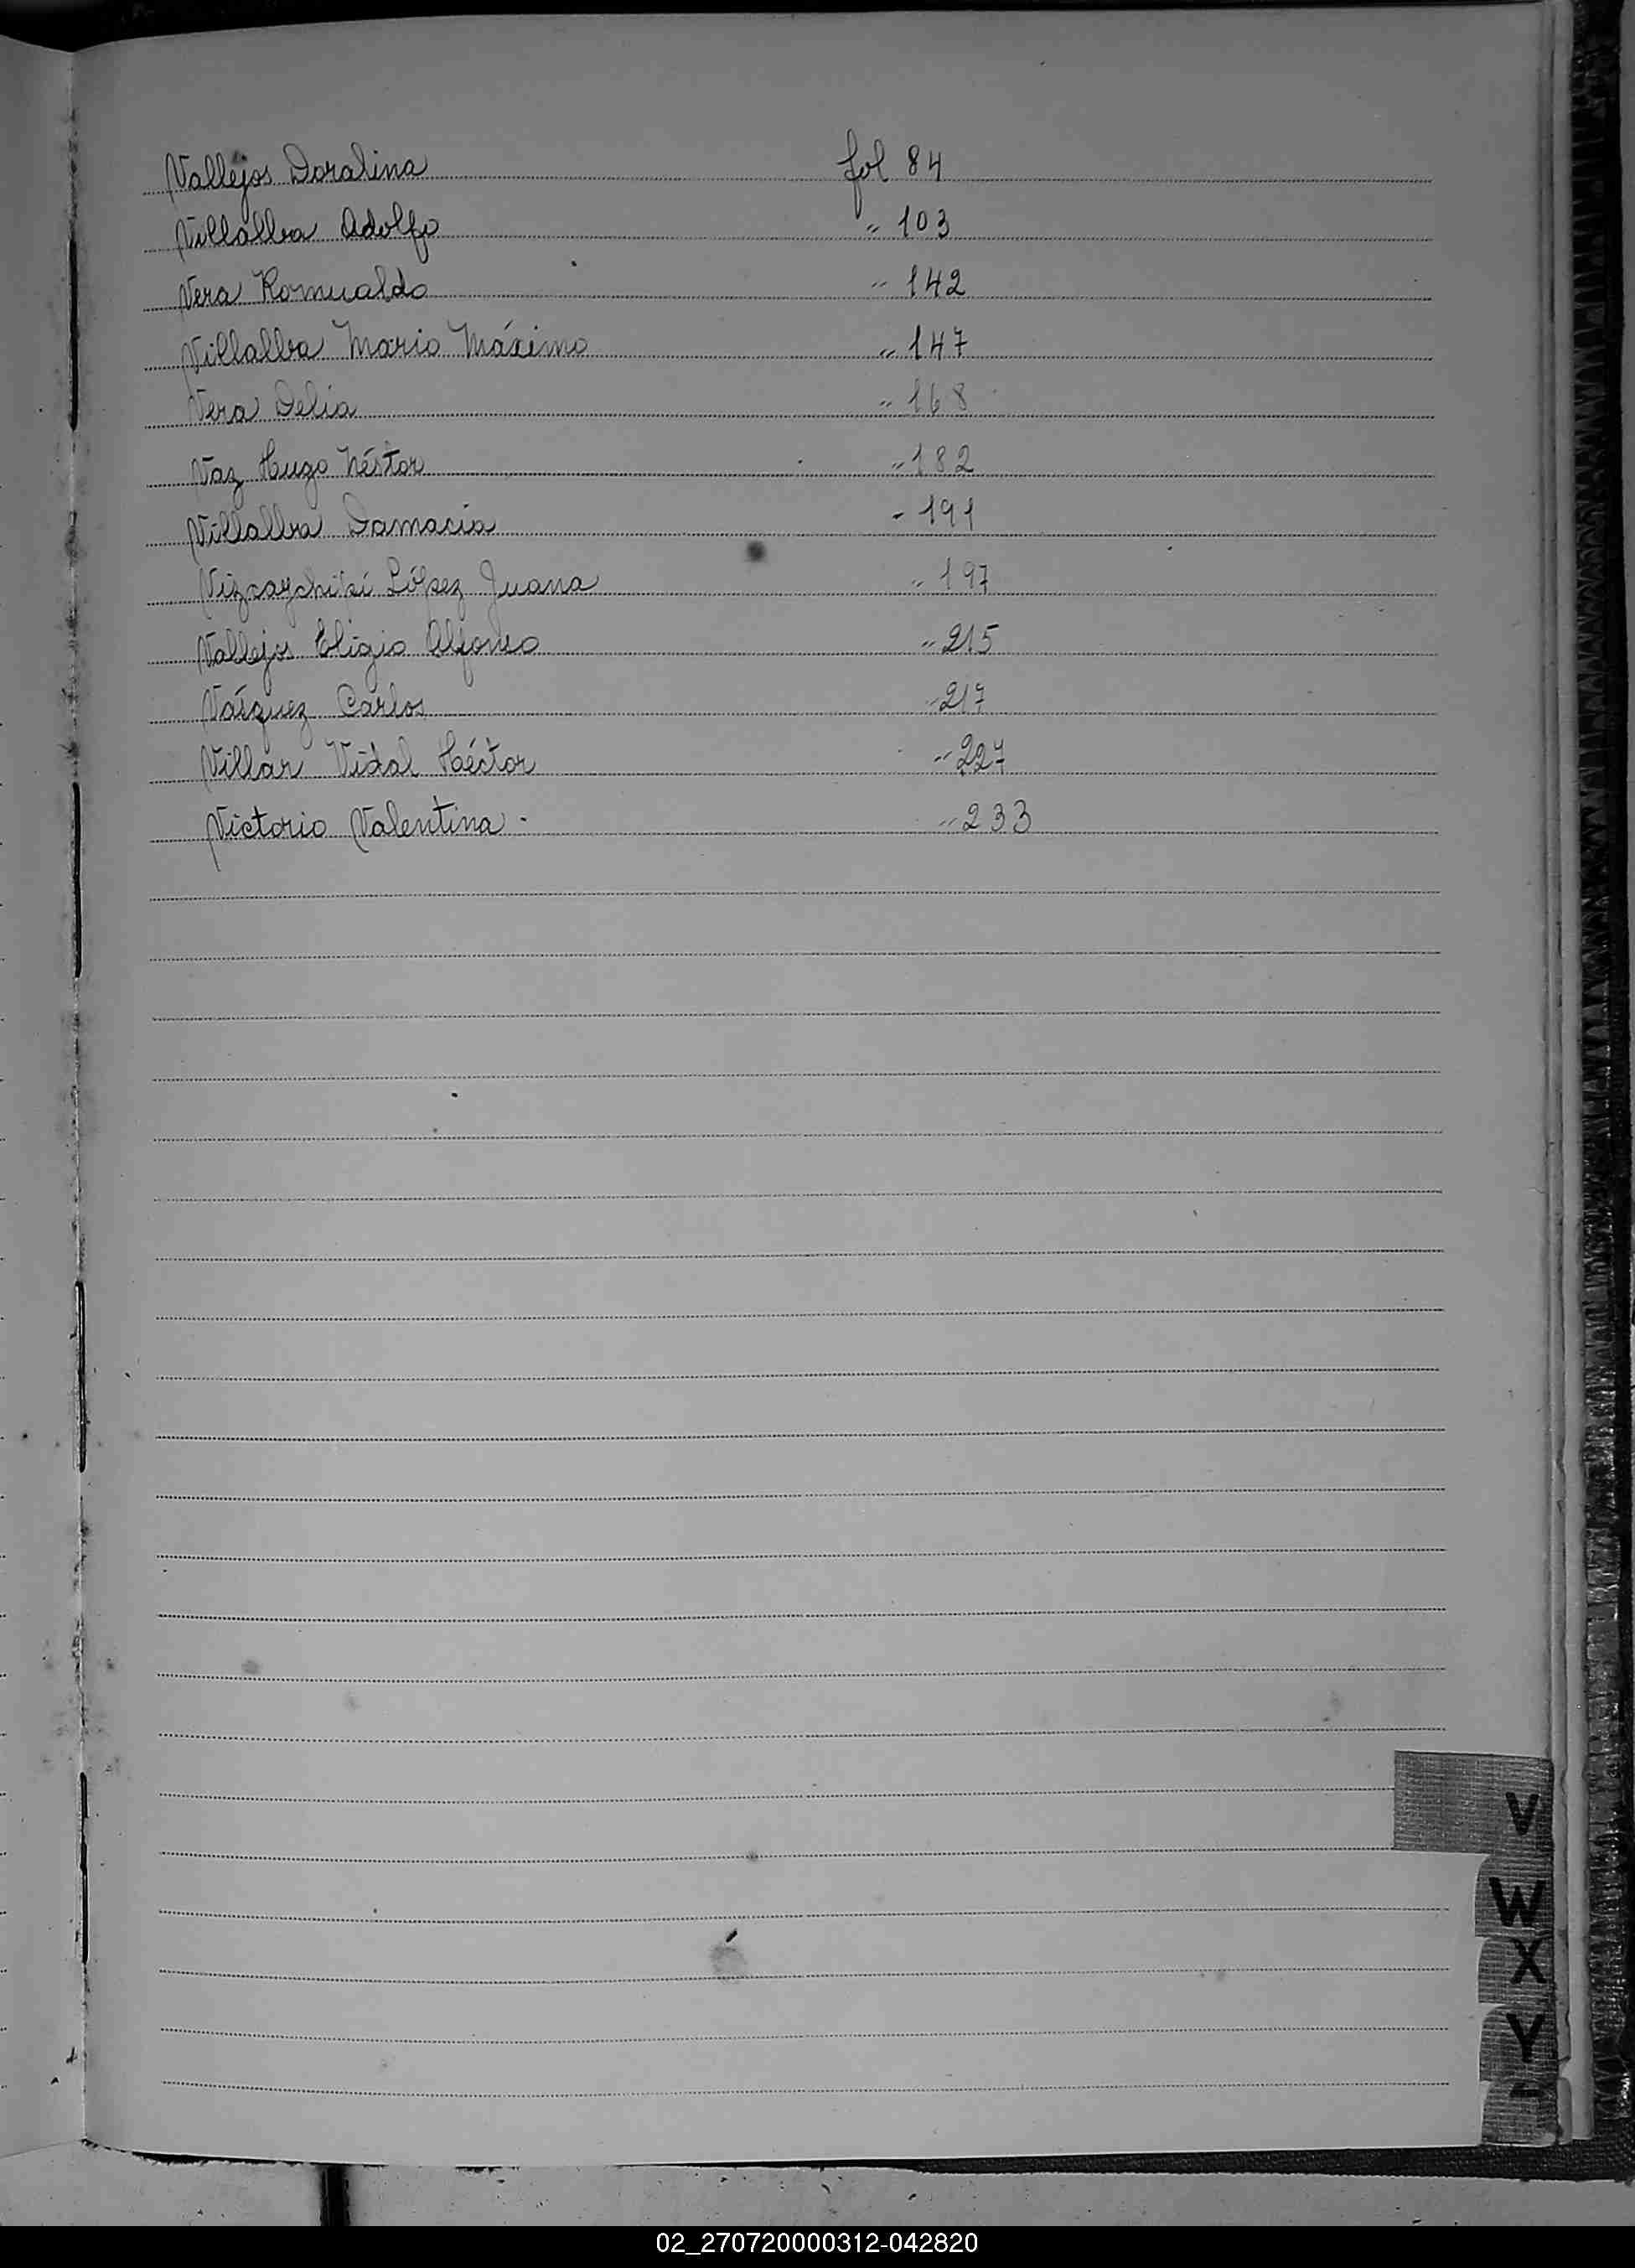 Vallejos Doralina fol 84
Villalba Adolfo " 103
Vera Romualdo " 142
Villalba Mario Máximo " 147
Vera Delia " 168
Vaz Hugo Néstor " 182
Villalba Damacia " 191
López Juana " 197
Vallejos Eligio Alfonso " 215
Vázquez Carlos " 217
Villar Vidal Héctor " 227
Victorio Valentina - " 233
V
W
X
Y
02_270720000312-042820